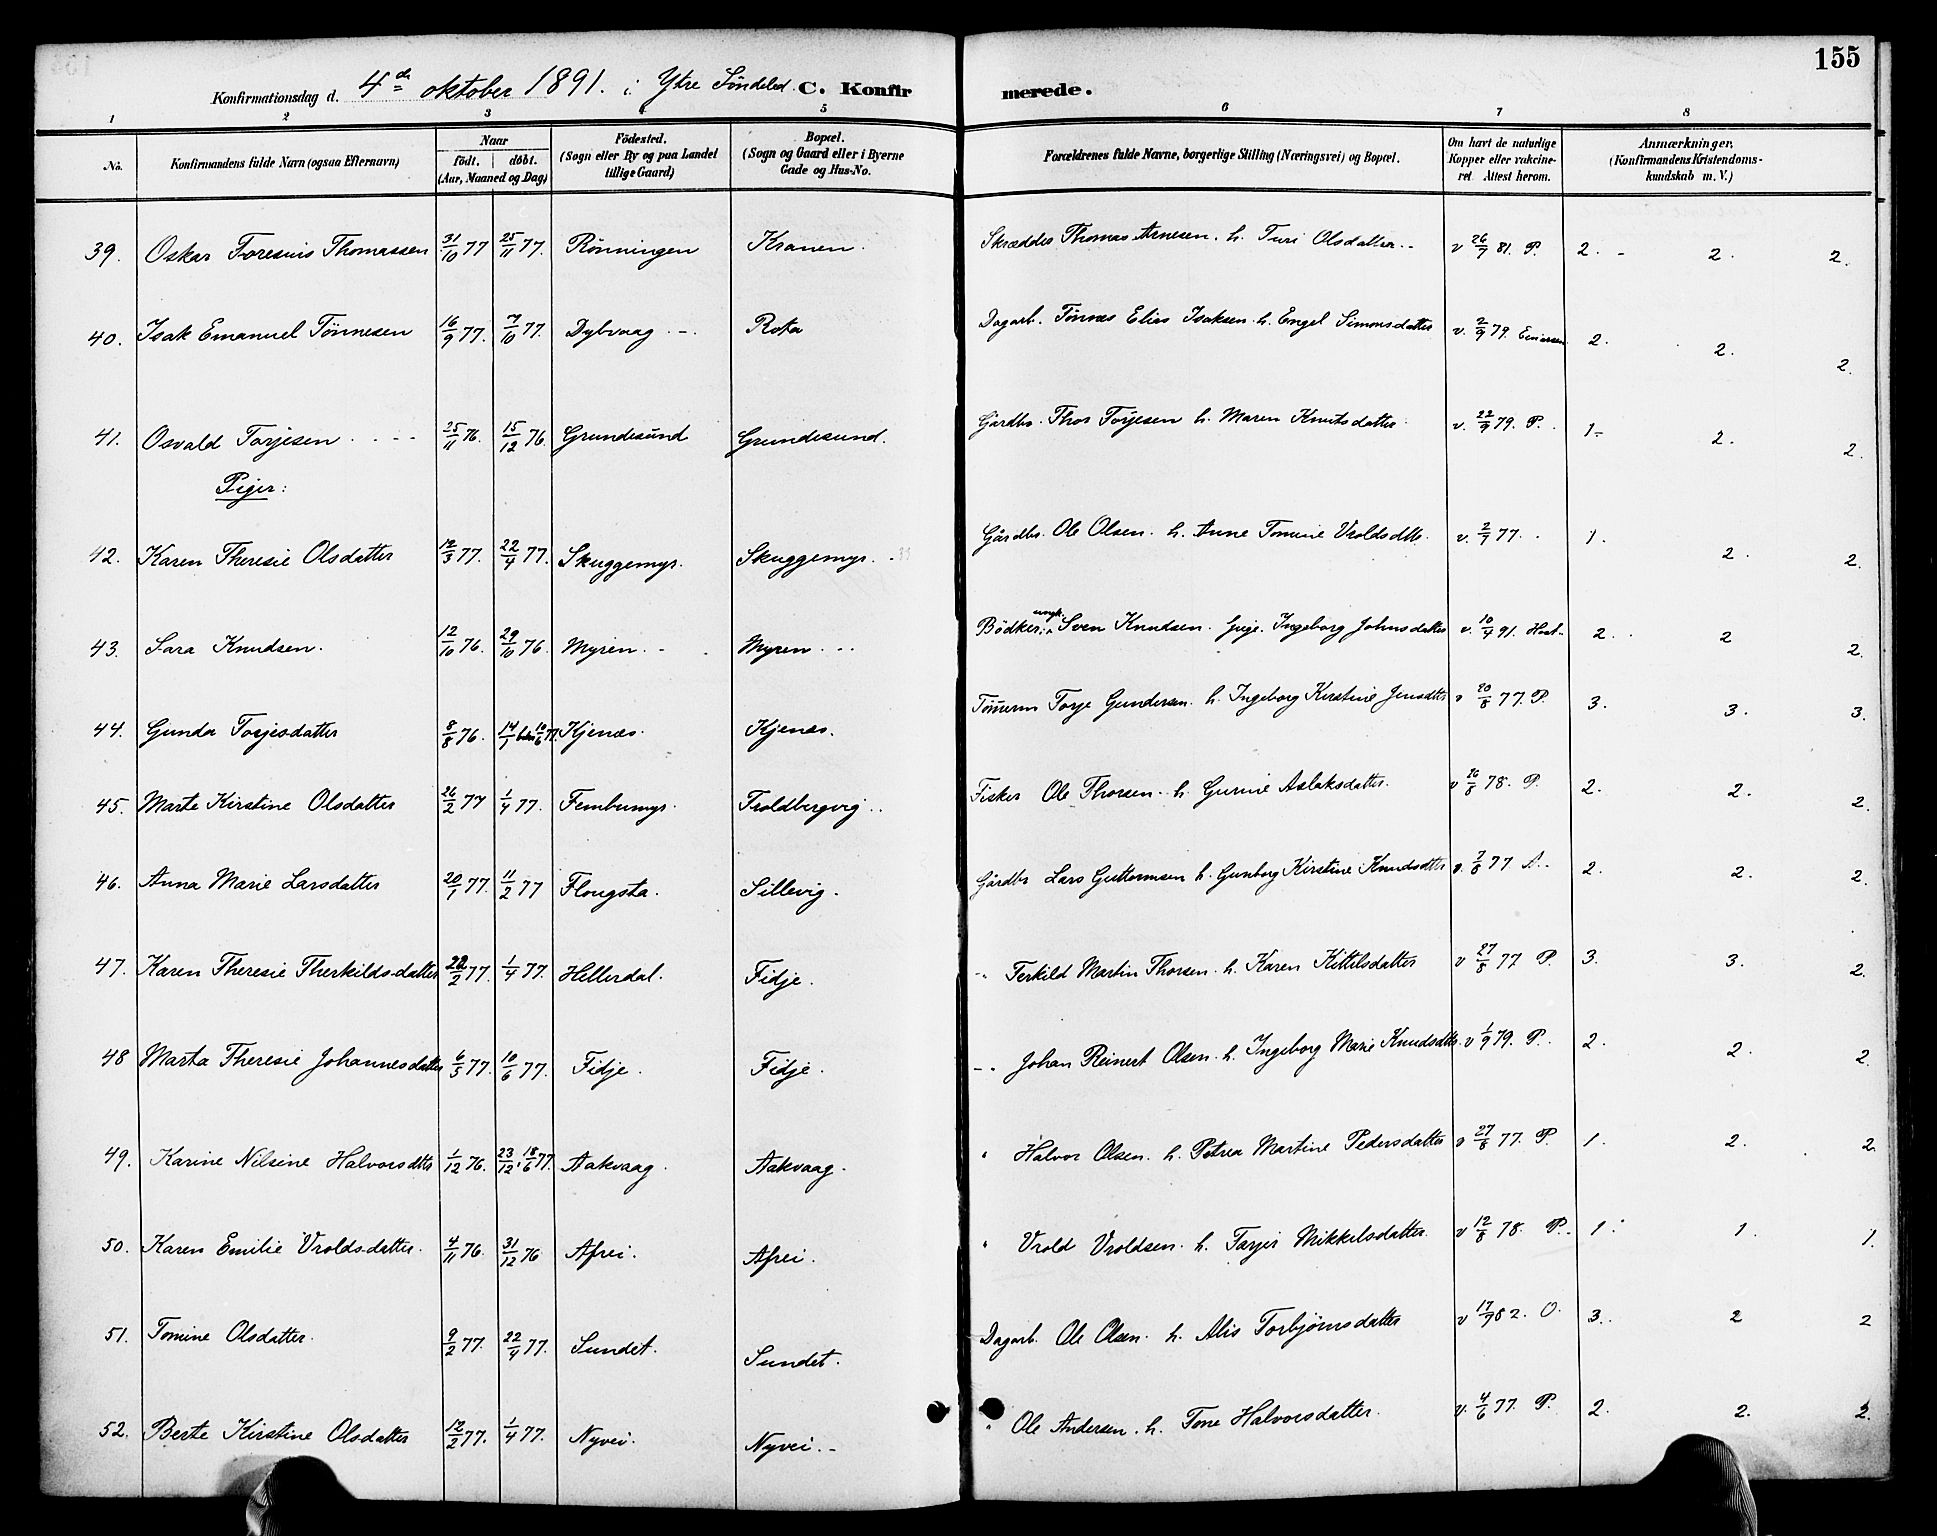 155
Konfirmationsdag d. 4de oktober 1891. i Ytre Søndeled. C. Konfir merede.
1 2 3 4 5 6 7 8
No. Konfirmandens fulde Navn (ogsaa Efternavn) Naar födt. döbt. (Aar, Maaned og Dag) Födested. (Sogn eller By og paa Landet tillige Gaard) Bopæl. (Sogn og Gaard eller i Byerne Gade og Hus-No. Forældrenes fulde Navne, borgerlige Stilling (Næringsvei) og Bopæl. Om havt de naturlige Kopper eller vakcineret Attest herom. Anmærkninger. (Konfirmandens Kristendomskundskab m. V.)
39. Oskar Foresius Thomassen 31/10 77 25/11 77. Rönningen Kranen. Skrædder Thomas Arnesen. h. Turi Olsdatter v 26/7 81. P. 2. 2. 2.
40. Isak Emanuel Tönnesen 16/9 77. 7/10 77. Dybvaag Rota Dagarb. Tönnes Elias Isaksen. h. Engel Simonsdatter v. 2/9 79. 2. 2. 2.
41. Osvald Torjesen 25/11 76. 15/12 76. Grundesund Grundesund. Gårdbr. Thor Torjesen h. Maren Knutsdatter v. 22/9 79. P. 1. 2. 2.
Piger:
42. Karen Theresie Olsdatter 12/3 77. 22/4 77. Skuggemyr. Skuggemyr. Gårdbr. Ole Olsen. h. Anne Tomine Vroldsdtr. v. 2/7 77. 1. 2. 2.
43. Sara Knudsen. 12/10 76. 29/10 76. Myren. Myren. Bödker, ungk. Sven Knudsen. pige. Ingeborg Johnsdatter v. 10/4 91. 2. 2 2.
44. Gunda Torjesdatter 8/8 76. 14/1 10/6 77. Kjenæs. Kjenæs. Tömerm Torje Gundersen. h. Ingeborg Kirstine Jensdtter v 20/8 77. P. 3. 3. 3.
45. Marte Kirstine Olsdatter 26/2 77 1/4 77. Fembumyr. Troldbergvig. Fisker Ole Thorsen. h. Gurine Aslaksdatter. v 26/8 78. P. 2. 2. 2.
46. Anna Marie Larsdatter 20/1 77. 11/2 77 Flougsta. Sillevig. Gårdbr Lars Guttormsen h. Gunborg Kirstine Knudsdtter v. 7/8 77 A. 2. 2. 2.
47. Karen Theresie Therkildsdatter 22/2 77. 1/4 77. Hellerdal. Fidje. -"- Terkild Martin Thorsen. h. Karen Kittilsdatter v 27/8 77 P. 3. 3. 2.
48 Marta Theresie Johannesdatter 6/5 77. 10/6 77. Fidje. Fidje. -"- Johan Reinert Olsen. h. Ingeborg Marie Knudsdtr. v 1/9 79. P. 2. 2. 2.
49. Karine Nilsine Halvorsdtr 1/12 76. 23/12, 18/6 77. Aakvaag. Aakvaag. " Halvor Olsen. h. Petrea Martine Pedersdatter v 27/8 77. P. 1. 2. 2.
50. Karen Emilie Vroldsdatter. 4/11 76. 31/12 76 Afrei. Afrei. " Vrold Vroldsen. h. Tarjer Mikkelsdatter. v 12/8 78. P. 1. 1. 1.
51. Tomine Olsdatter. 9/2 77. 22/4 77. Sundet. Sundet. Dagarb. Ole Olsen. h. Alis Torbjørnsdatter v 17/9 82. O. 3. 2 2
52. Berte Kirstine Olsdatter 12/2 77. 1/4 77. Nyvei. Nyvei. " Ole Andersen. h. Tone Halvorsdatter. v. 4/6 77. P. 2. 2. 2.